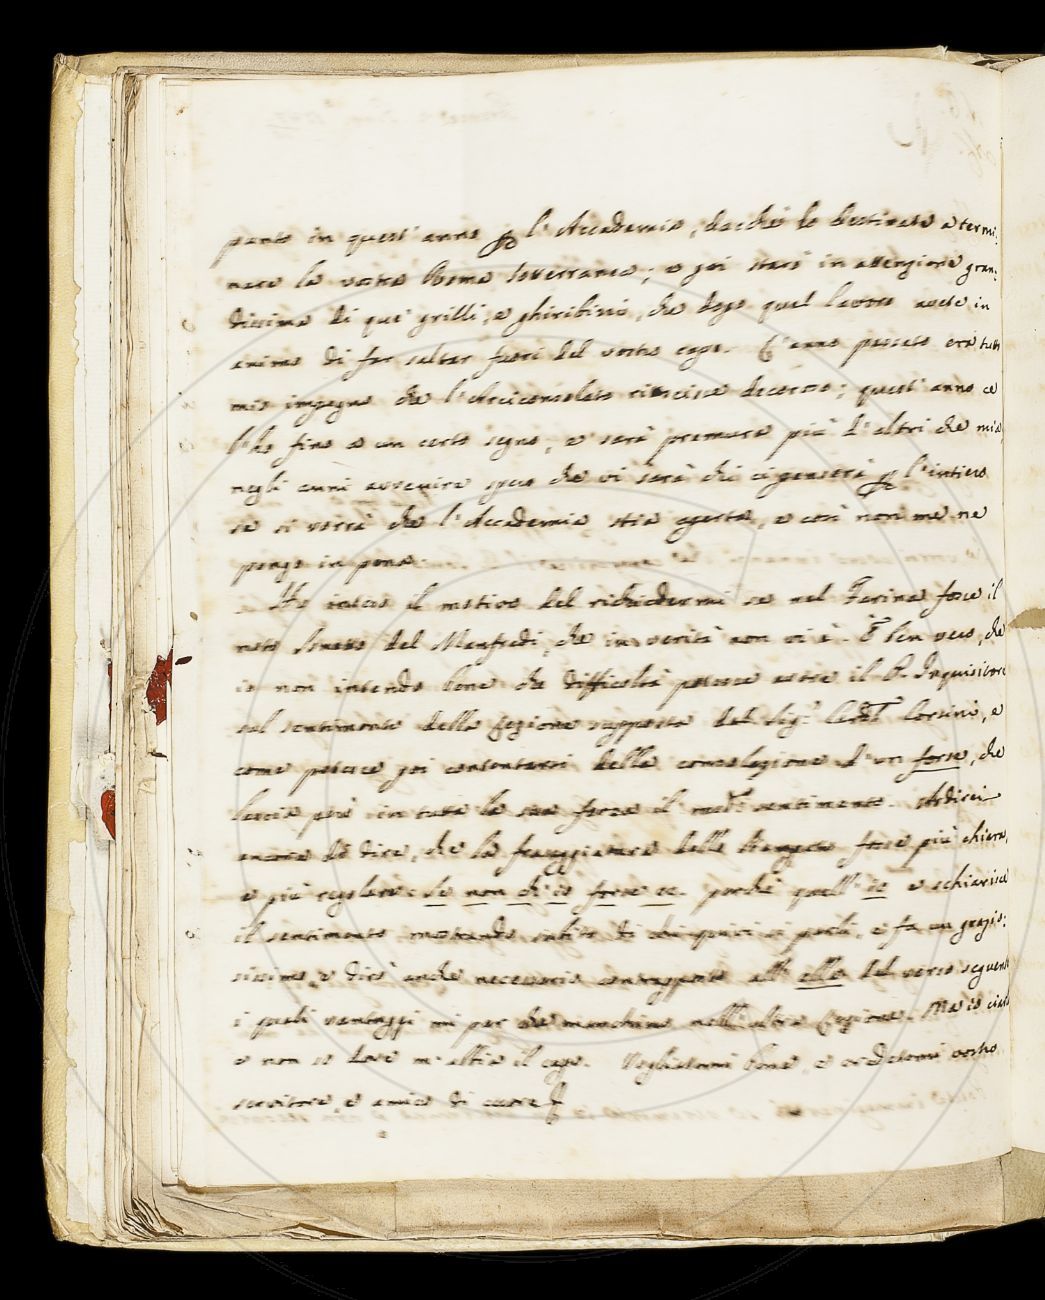 punto in quest' anno per l'Accademia, dacché lo destinate a termi:
nare la vostra Roma sotterranea; e poi starò in attenzione gran:
dissima di que' grilli, e ghiribizzi, che dopo quel lavoro avete in
animo di far saltar fuori del vostro capo. L'anno passato era tutto
mio impegno che l'Arciconsolato riuscisse decoroso; quest' anno ce
l'ho fino a un certo segno, e sarà premura più d'altri che mia
negli anni avvenire spero che vi sarà chi ci penserà per l'intiero
se si vorrà che l'Accademia stia aperta, e così non me ne
pongo in pena.
Ho inteso il motivo del richiedermi se nel Farina fosse il
noto Sonetto del Manfredi, che in verità non vi è. È ben vero, che
io non intendo bene che difficoltà potesse avere il P. Inquisitore
sul sentimento della lezione supposta dal Sig. Card. Corsini, e
come potesse poi contentarsi della consolazione d'un forse, che
lascia però in tutta la sua forza il med. sentimento. Ardirei
ancora di dire, che la fraseggiatura della stampata fosse più chiara,
e più regolare: Se non ch' io forse ec. perché quell' io e schiarisce
il sentimento mostando subito di chi quivi si parli, e fa un grazio:
sissimo, e dirò anche necessario contrapposto all' ella del verso seguente
i quali vantaggi mi par che manchino nell' altra lezione. Ma io ciarlo
e non so dove m' abbia il capo. Vogliatemi bene, e credetemi vostro
servitore, e amico di cuore